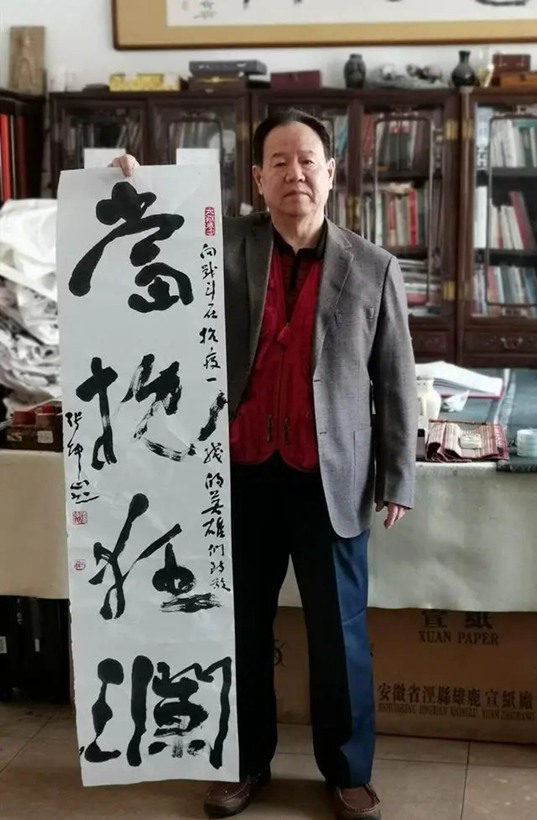 當挽狂瀾
向战斗在抗疫一线的英雄们致敬
张坤山
宣紙
XUAN PAPER
安徽省涇縣雄鹿宣紙廠